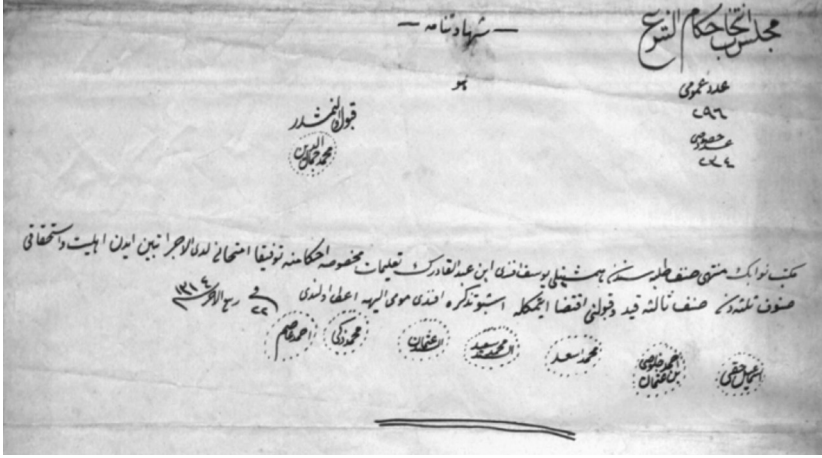 مجلس انتخاب حكام الشرع
— شهادتنامه —
هو
عدد عمومی
٢٩٦
عدد خصوصی
٢٣٤
قبول اولنمشدر
محمد جمال الدین
مكتب نوابك منتهی صنف طلبه سندن یوسف افندی ابن عبدالقادرك تعلیمات مخصوصه احكامنه توفیقا امتحانی لدی الاجرا تبین ایدن اهلیت واستحقاقی
صنوف ثلثه دن صنف ثالثه قید وقبولنی اقتضا ایتمكله اشبو تذكره افندی مومی الیهه اعطا اولندی فی ٢٢ ربیع الاخر سنه ١٣١٤
احمد عاصم
محمد زكی
السید عثمان
السید محمد سعید
محمد اسعد
احمد خلوصی بن عثمان
اسمعیل حقی